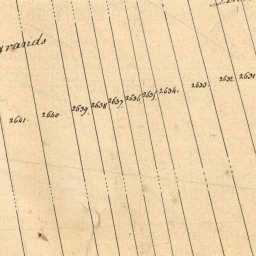 2641. 2640 2639. 2638 2637. 2636 2635 2634. 2633. 2632. 2631